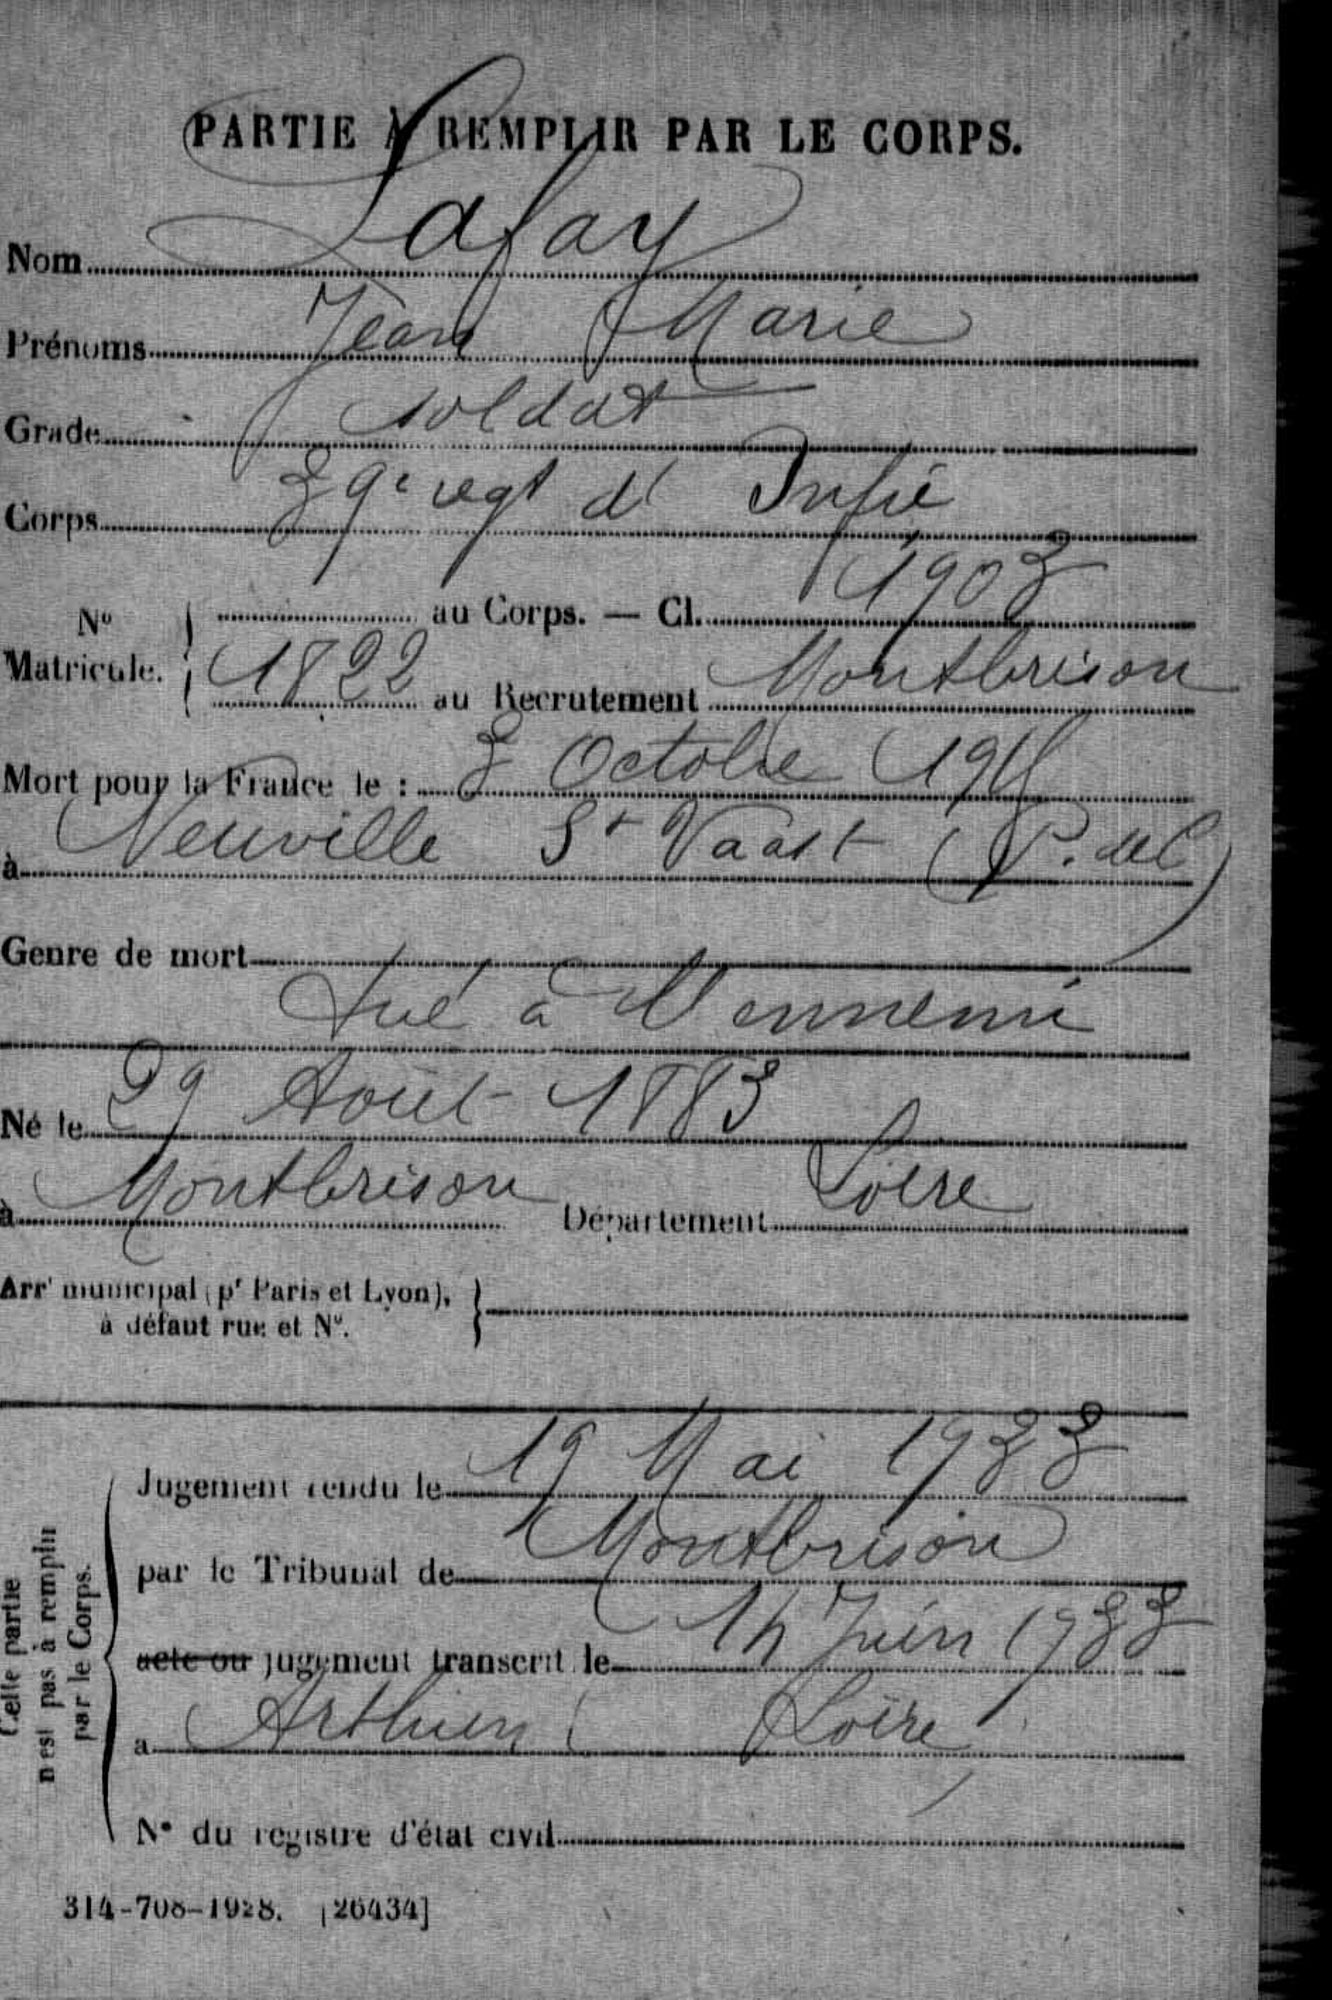 PARTIE À REMPLIR PAR LE CORPS.
Nom Lafay
Prénoms Jean Marie
Grade soldat
Corps 39e regt d' Infie
No Matricule. { au Corps. — Cl. 1903
1822 au Recrutement Montbrison
Mort pour la France le : 3 Octobre 1915
à Neuville St Vaast (P. de C)
Genre de mort
tué à l'ennemi
Né le 29 Août 1883
à Montbrison Département Loire
Arrt municipal (pr Paris et Lyon), }
à défaut rue et No.
Cette partie
n'est pas à remplir
par le Corps.
Jugement rendu le 19 Mai 1933
par le Tribunal de Montbrison
acte ou jugement transcrit le 14 Juin 1933
à Arthun ( Loire
No du registre d'état civil
314-708-1928. [26434]